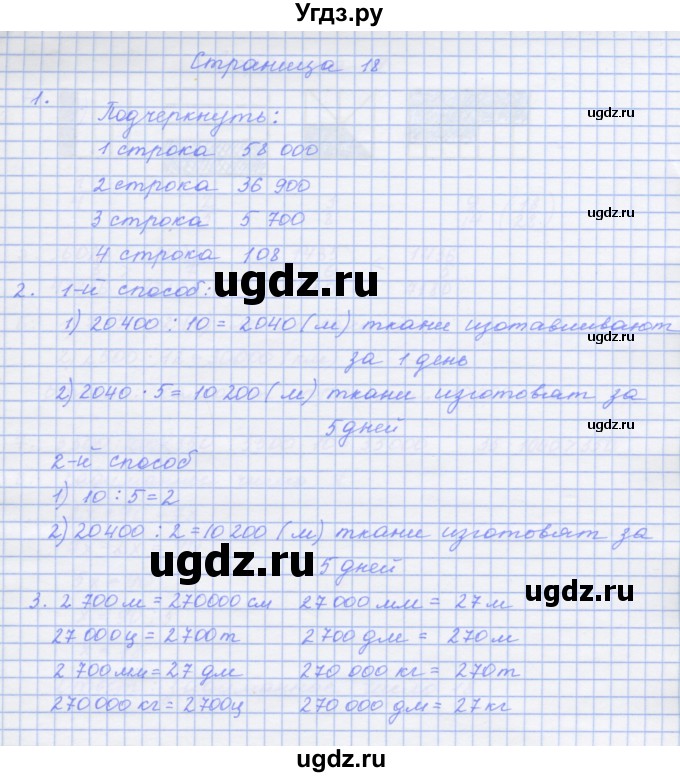 Угдз.ру
Страница 18
ugdz.ru
1.
Подчеркнуть:
ugdz.ru
1 строка 58 000
2 строка 36 900
3 строка 5 700
ugdz.ru
4 строка 108
ugdz.ru
2. 1-й способ:
1) 20400 : 10 = 2040 (м) ткани изотавливают
ugdz.ru
за 1 день
2) 2040 · 5 = 10 200 (м) ткани изготовят за
5 дней
ugdz.ru
2-й способ
1) 10 : 5 = 2
2) 20400 : 2 = 10 200 (м) ткани изготовят за
ugdz.ru
5 дней
ugdz.ru
3. 2 700 м = 270000 см 27 000 мм = 27 м
27 000 ц = 2700 т 2700 дм = 270 м
2 700 мм = 27 дм 270 000 кг = 270 т
270 000 кг = 2700 ц 270 000 дм = 27 кг
ugdz.ru